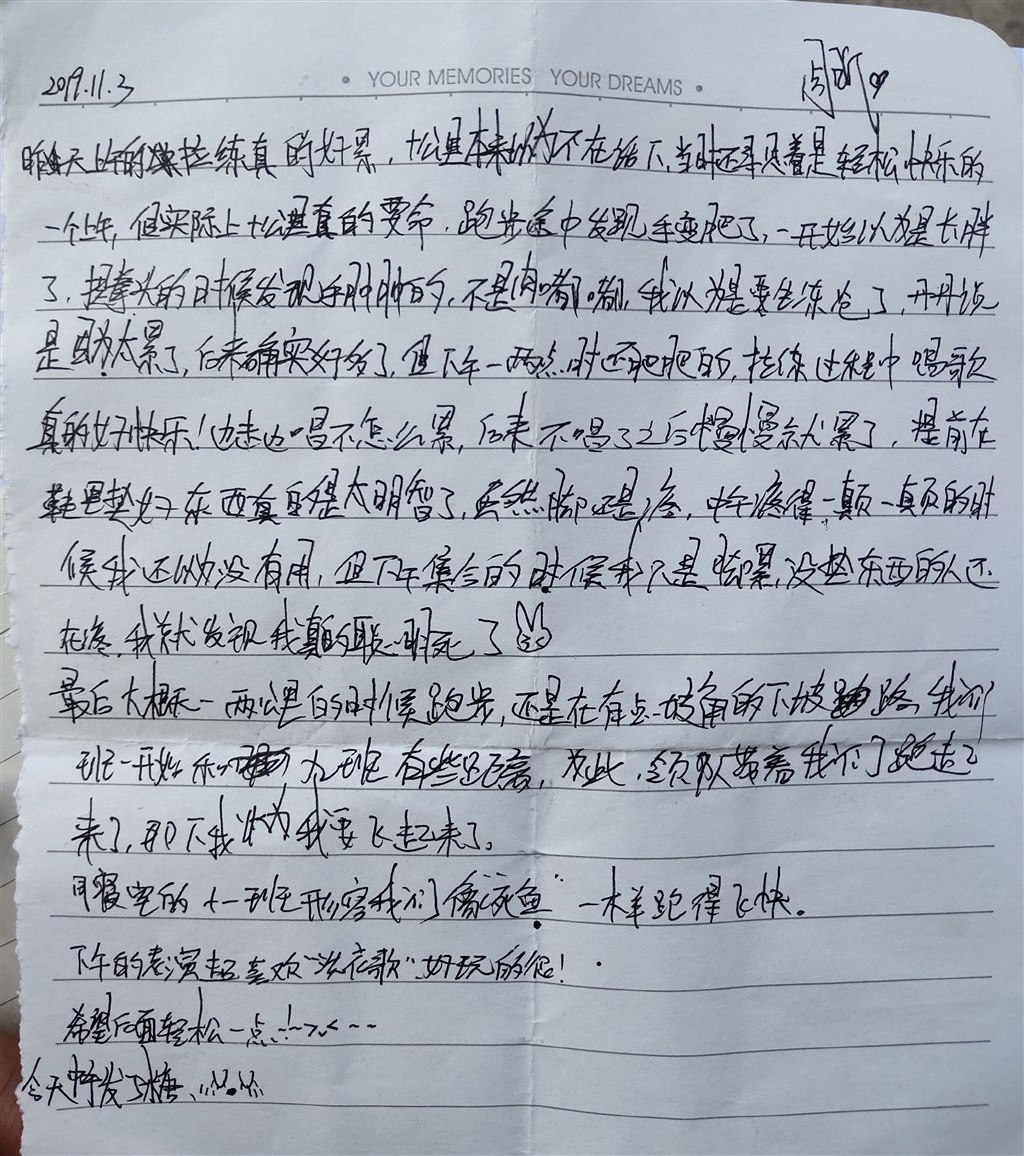 2019.11.3
YOUR MEMORIES YOUR DREAMS
周
昨天上午的拉练真的好累，十公里本来以为不在话下，当时还寻思着是轻松快乐的
一个上午，但实际上十公里真的要命．跑步途中发现手变肥了，一开始以为是长胖
了，握拳头的时候发现手肿肿的，不是肉嘟嘟，我以为是要生冻疮了，丹丹说
是因为太累了，后来确实好多了，但下午一两点时还肥肥的，拉练过程中唱歌
真的好快乐！边走边唱不怎么累，后来不唱了之后慢慢就累了，提前在
鞋里垫好东西真的是太明智了，虽然脚还是疼，中午疼得一颠一颠的时
候我还以为没有用，但下午集合的时候我只是脚累，没垫东西的人还
在疼，我就发现我真的聪明死了
最后大概一两公里的时候跑步，还是在有点坡角的下坡路，我们
班一开始和九班有些距离，为此，领队带着我们跑起
来了，那下我以为我要飞起来了。
同寝室的十一班形容我们像“死鱼”一样跑得飞快。
下午的表演超喜欢“洗衣歌”好玩的很！
希望后面轻松一点
今天中午发了糖、